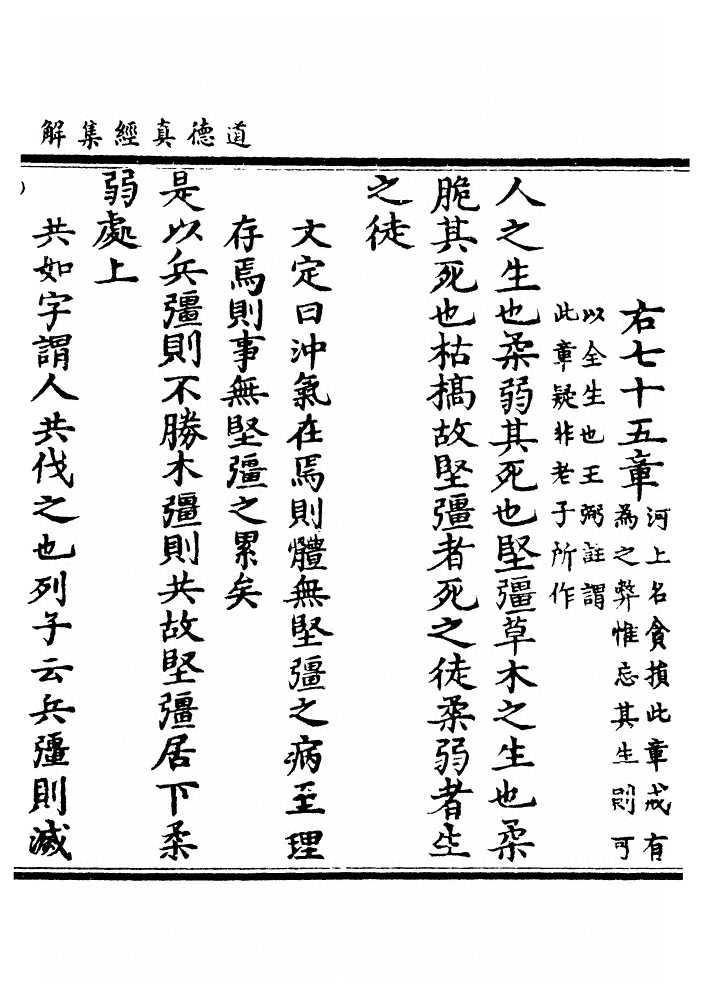 道德真經集解
右七十五章
河上名貪損此章戒有
為之弊惟忘其生則可
以全生也王弼註謂
此章疑非老子所作
人之生也柔弱其死也堅彊草木之生也柔
脆其死也枯槁故堅彊者死之徒柔弱者生
之徒
文定曰沖氣在焉則體無堅彊之病至理
存焉則事無堅彊之累矣
是以兵彊則不勝木彊則共故堅彊居下柔
弱處上
共如字謂人共伐之也列子云兵彊則滅